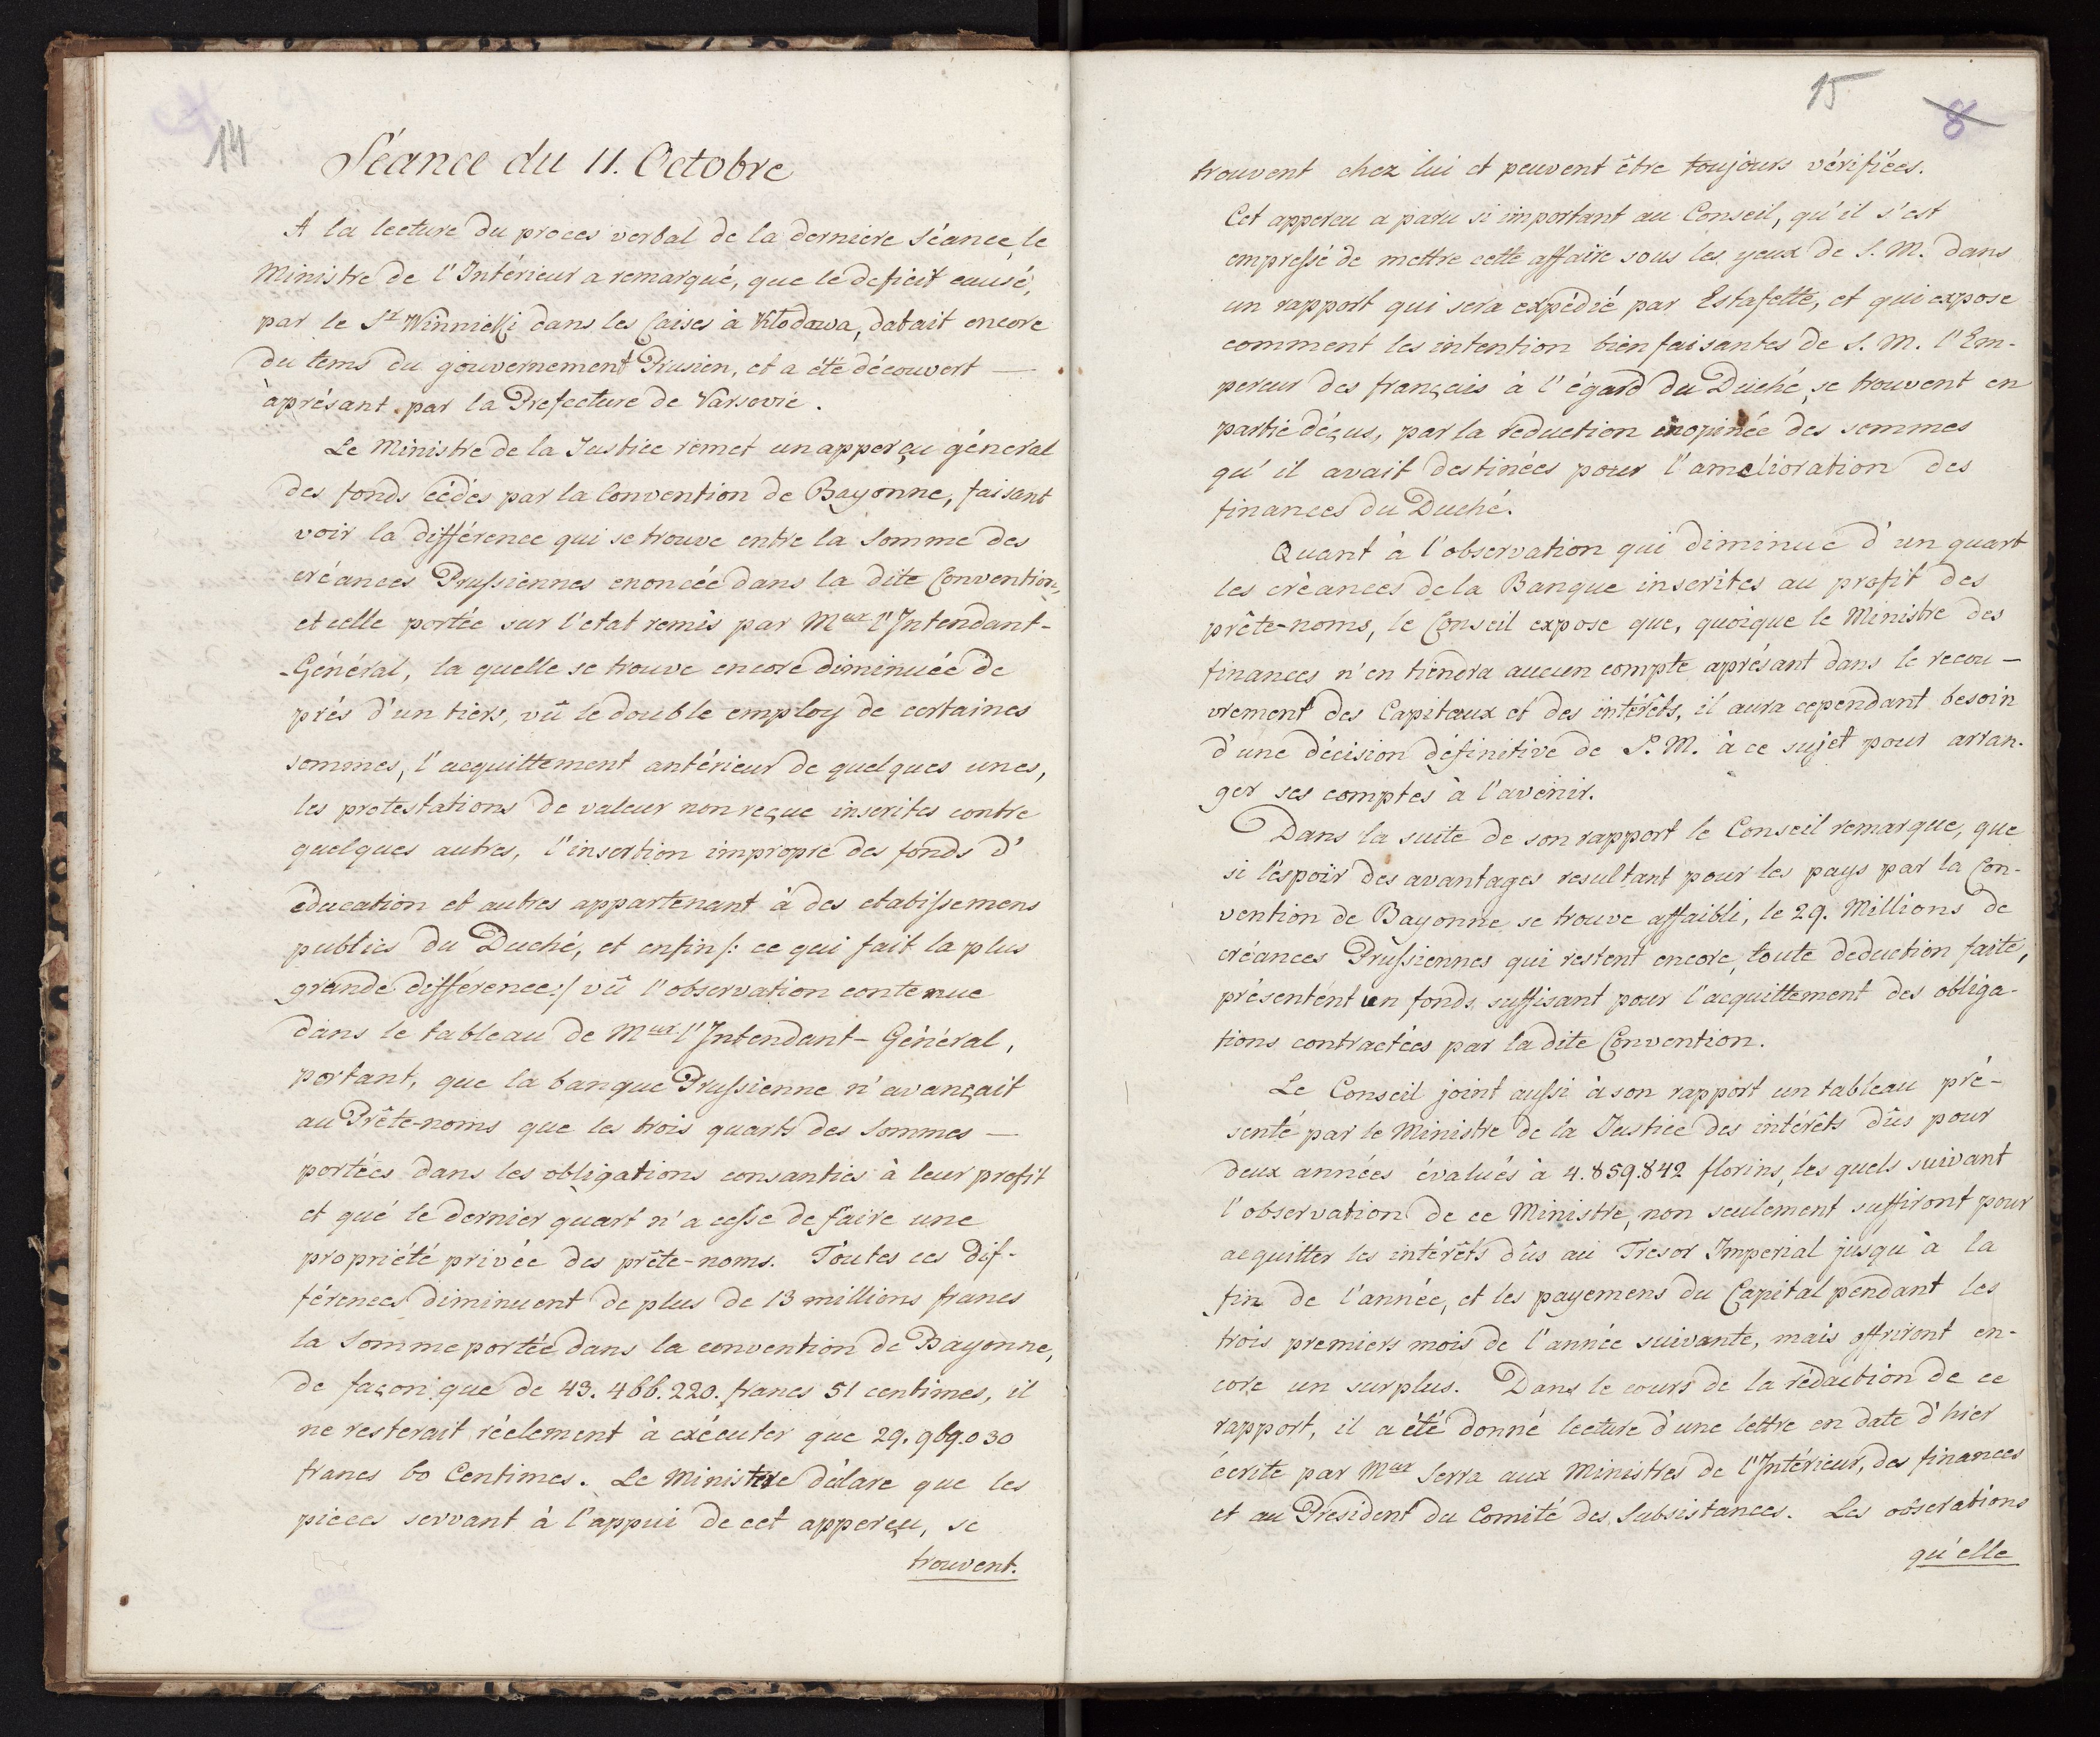 14
Séance du 11. Octobre
A la lecture du proces verbal de la derniere Séance, le
Ministre de l'Intérieur a remarqué, que le deficit causé,
par le Sr. Winnicki dans les Caises à Kłodawa, datait encore
du tems du gouvernement Prusien, et a été découvert —
àprésant par la Prefecture de Varsovie.
Le Ministre de la Justice remet un apperçu géneral
des fonds cédés par la Convention de Bayonne, faisant
voir la différence qui se trouve entre la Somme des
créances Prussiennes enoncée dans la dite Convention,
et celle portée sur l'etat remis par Meur l'Intendant-
-Général, la quelle se trouve encore diminuée de
prés d'un tiers, vû le double employ de certaines
sommes, l'acquittement antérieur de quelques unes,
les protestations de valeur non reçue inscrites contre
quelques autres, l'insertion impropre des fonds d'
education et autres appartenant à des etatissemens
publics du Duché, et enfin /: ce qui fait la plus
grande différence :/ vû l'observation contenue
dans le tableau de Meur l'Intendant-Général,
portant, que la banque Prussienne n'avançait
au Prête-noms que les trois quarts des Sommes —
portées dans les obligations consanties à leur profit
et qué le dernier quart n'a cesse de faire une
propriété privée des prête-noms. Toutes ces dif-
férences diminuent de plus de 13 millions francs
la Somme portée dans la convention de Bayonne,
de façon que de 43. 466. 220. francs 51 centimes, il
ne resterait réelement à exécuter que 29. 969. 030
francs 60 Centimes. Le Ministre délare que les
pieces servant à l'appui de cet apperçu, se
trouvent.
15
8
trouvent chez lui et peuvent être toujours vérifiées.
Cet appercu a paru si important au Conseil, qu'il s'est
empressé de mettre cette affaire sous les yeux de S. M. dans
un rapport qui sera expédié par Estafette, et qui expose
comment les intention bienfaisantes de S. M. l'Em-
pereur des français à l'égard du Duché, se trouvent en
partie déçus, par la reduction inopinée des sommes
qu'il avait destinées pour l'amelioration des
finances du Duché.
Quant à l'observation qui diminue d'un quart
les créances de la Banque inscrites au profit des
prête-noms, le Conseil expose que, quoique le Ministre des
finances n'en tiendra aucun compte aprésant dans le recou-
vrement des Capitaux et des intérêts, il aura cependant besoin
d'une décision définitive de S. M. à ce sujet pour arran-
ger ses comptes à l'avenir.
Dans la suite de son rapport le Conseil remarque, que
si l'espoir des avantages resultant pour les pays par la Con-
vention de Bayonne se trouve affaibli, le 29. Millions de
créances Prussiennes qui restent encore, toute deduction faite,
présentent un fonds suffisant pour l'acquittement des obliga-
tions contractées par la dite Convention.
Le Conseil joint aussi à son rapport un tableau pré-
senté par le Ministre de la Justice des intérêts dûs pour
deux années évalués à 4. 859. 842 florins, les quels suivant
l'observation de ce Ministre, non seulement suffiront pour
acquitter les intérêts dûs au Tresor Imperial jusqu'à la
fin de l'année, et les payemens du Capital pendant les
trois premiers mois de l'année suivante, mais offriront en-
core un surplus. Dans le cours de la rédaction de ce
rapport, il a été donné lecture d'une lettre en date d'hier
écrite par Meur Serra aux Ministres de l'Intérieur, des finances
et au President du Comité des Subsistances. Les obserations
qu'elle